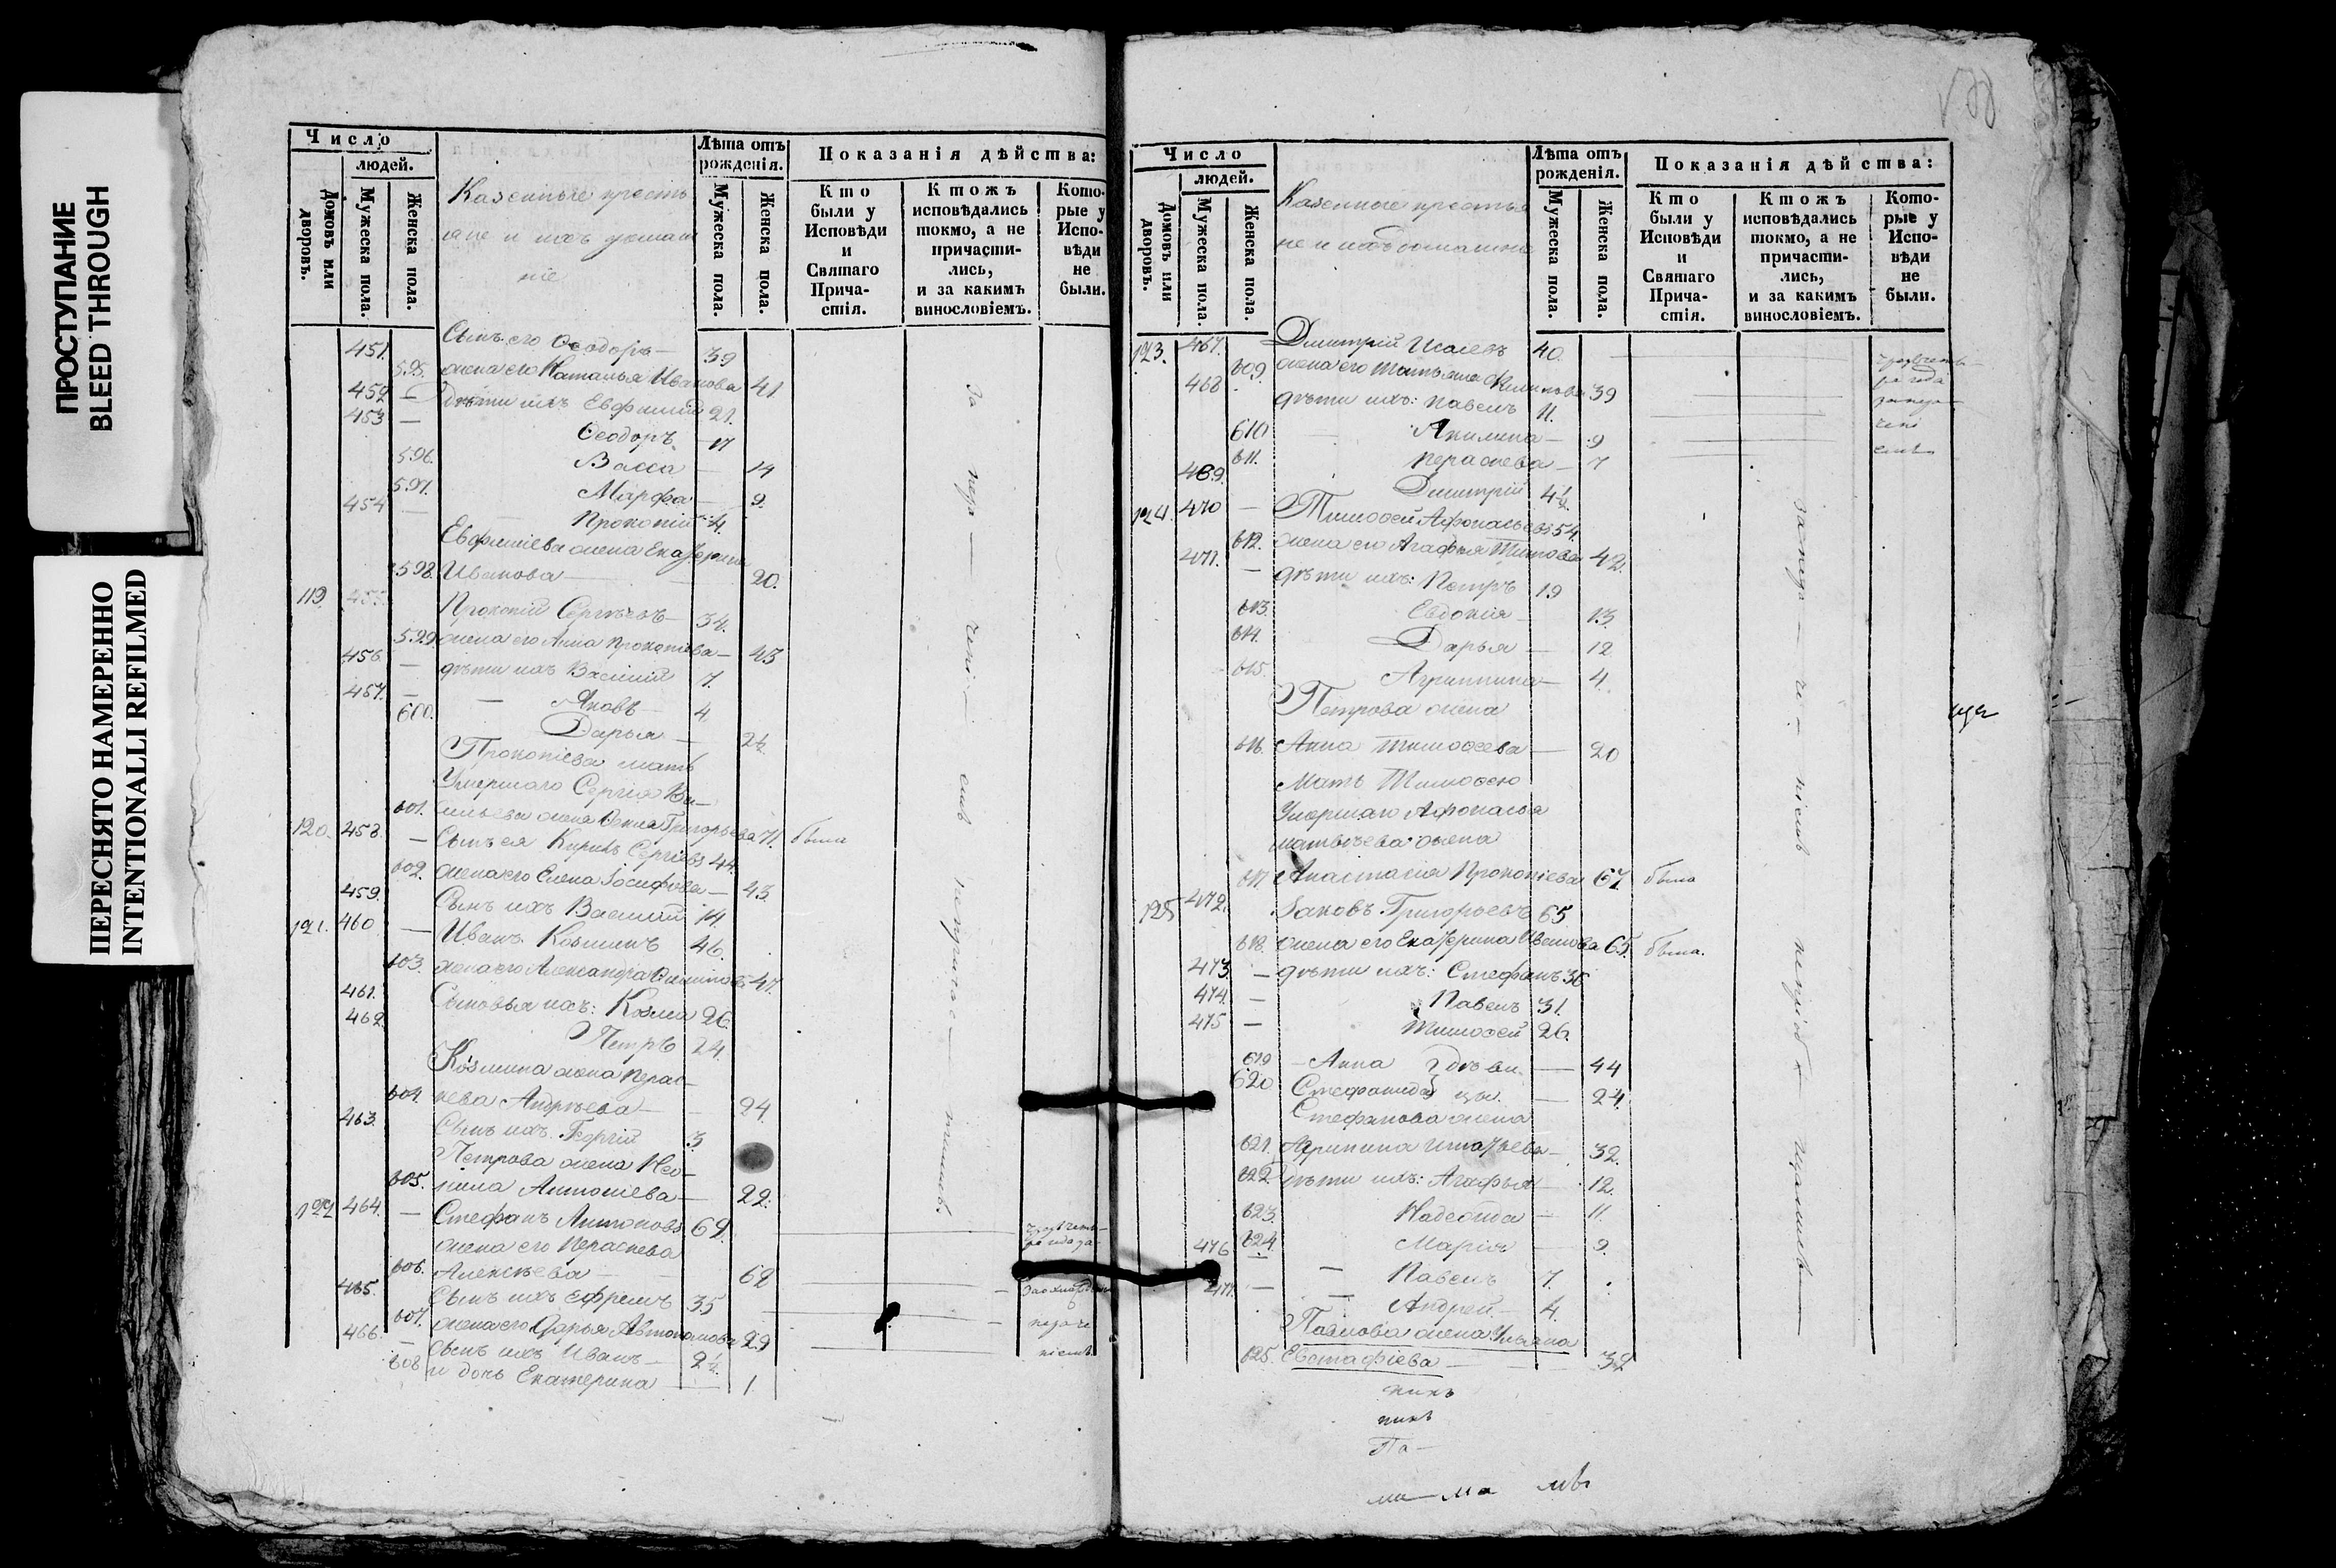 ПРОСТУПАНИЕ
BLEED THROUGH
ПЕРЕСНЯТО НАМЕРЕННО
INTENTIONALLI REFILMED
Число
людей.
Домовъ или дворовъ.
Мужеска пола.
Женска пола.
Казенные крестья
не и ихъ домаш
ніе
Лѣта отъ рожденія.
Мужеска пола.
Женска пола.
Показанія дѣйства:
Кто были у Исповѣди и Святаго Прича- стія.
Ктожъ исповѣдались токмо, а не причасти- лись, и за какимъ винословіемъ.
Кото- рые у Испо- вѣди не были.
451. Сынъ его Ѳеодоръ — 39
595. жена его Наталья Иванова 41
452 — Дѣти ихъ Евфимій 21.
453 — Ѳеодоръ — 17
596. Васса — 14
597. Марфа — 9.
454 — Прокопій 4.
Евфиміева жена Екатерина
598. Иванова — 20.
119. 455. Прокопій Сергѣевъ — 34.
599 жена его Анна Прокопіева — 43
456 — дѣти ихъ Василій 7.
457. — Яковъ — 4
600. Дарья — 2½
Прокопіева мать
Умершаго Сергія Ва-
601. сильева жена Ѳекла Григорьева 71. была
120. 458. — Сынъ ея Кирилъ Сергіевъ 44.
602. жена его Елена Іосифова — 43
459. Сынъ ихъ Василій 14.
121. 460 — Иванъ Козминъ 46.
603. жена его Александра 47.
461. Сыновья ихъ: Козма 26.
462. Петръ 24.
Козмина жена Парас-
604. кева Андреева — 24.
463. Сынъ ихъ Георгій 3
Петрова жена Нео-
605. нила Антоніева — 22.
122 464. — Стефанъ Антоновъ 69.
жена его Параскева
606. Алексѣева — 68
465. Сынъ ихъ Ефремъ 35
607. жена его Дарья Автономова 29
466. — Сынъ ихъ Иванъ — 2½
608 и дочь Екатерина — 1.
Число
людей.
Домовъ или дворовъ.
Мужеска пола.
Женска пола.
Казенные крестья
не и ихъ домашніе
Лѣта отъ рожденія.
Мужеска пола.
Женска пола.
Показанія дѣйства:
Кто были у Исповѣди и Святаго Прича- стія.
Ктожъ исповѣдались токмо, а не причасти- лись, и за какимъ винословіемъ.
Кото- рые у Испо- вѣди не были.
123. 467. Димитрій Исаевъ 40.
609. жена его Татьяна 39
468 дѣти ихъ: Павелъ 11.
610 Акилина — 9
611. Параскева — 7
469. Димитрій 4½
124. 470 — Тимоѳей Аѳонасьевъ 54.
612. жена его Агафья Титова 42.
471. — дѣти ихъ: Петръ 19
613. Евдокія — 13.
614. Дарья — 12
615. Агриппина — 4.
Петрова жена
616. Анна Тимоѳеева — 20
Мать Тимоѳею
Умершаго Афонасья
матвѣева жена
617. Анастасія Прокопіева 67. была
125 472. Іаковъ Григорьевъ 65
618. жена его Екатерина Иванова 65. была.
473. — дѣти ихъ: Стефанъ 36
474. — Павелъ 31.
475 — Тимоѳей 26.
619 — Анна } дѣви — 44
620 Стефанида } цы. — 24.
Стефанова жена
621. Агрипина Игнатьева — 32.
622. Дѣти ихъ: Агафья — 12.
623. Надежда — 11.
624. Марія — 9.
476 — Павелъ 7.
477. — Андрей — 4.
Павлова жена Ульяна
625. Евстафіева — 32